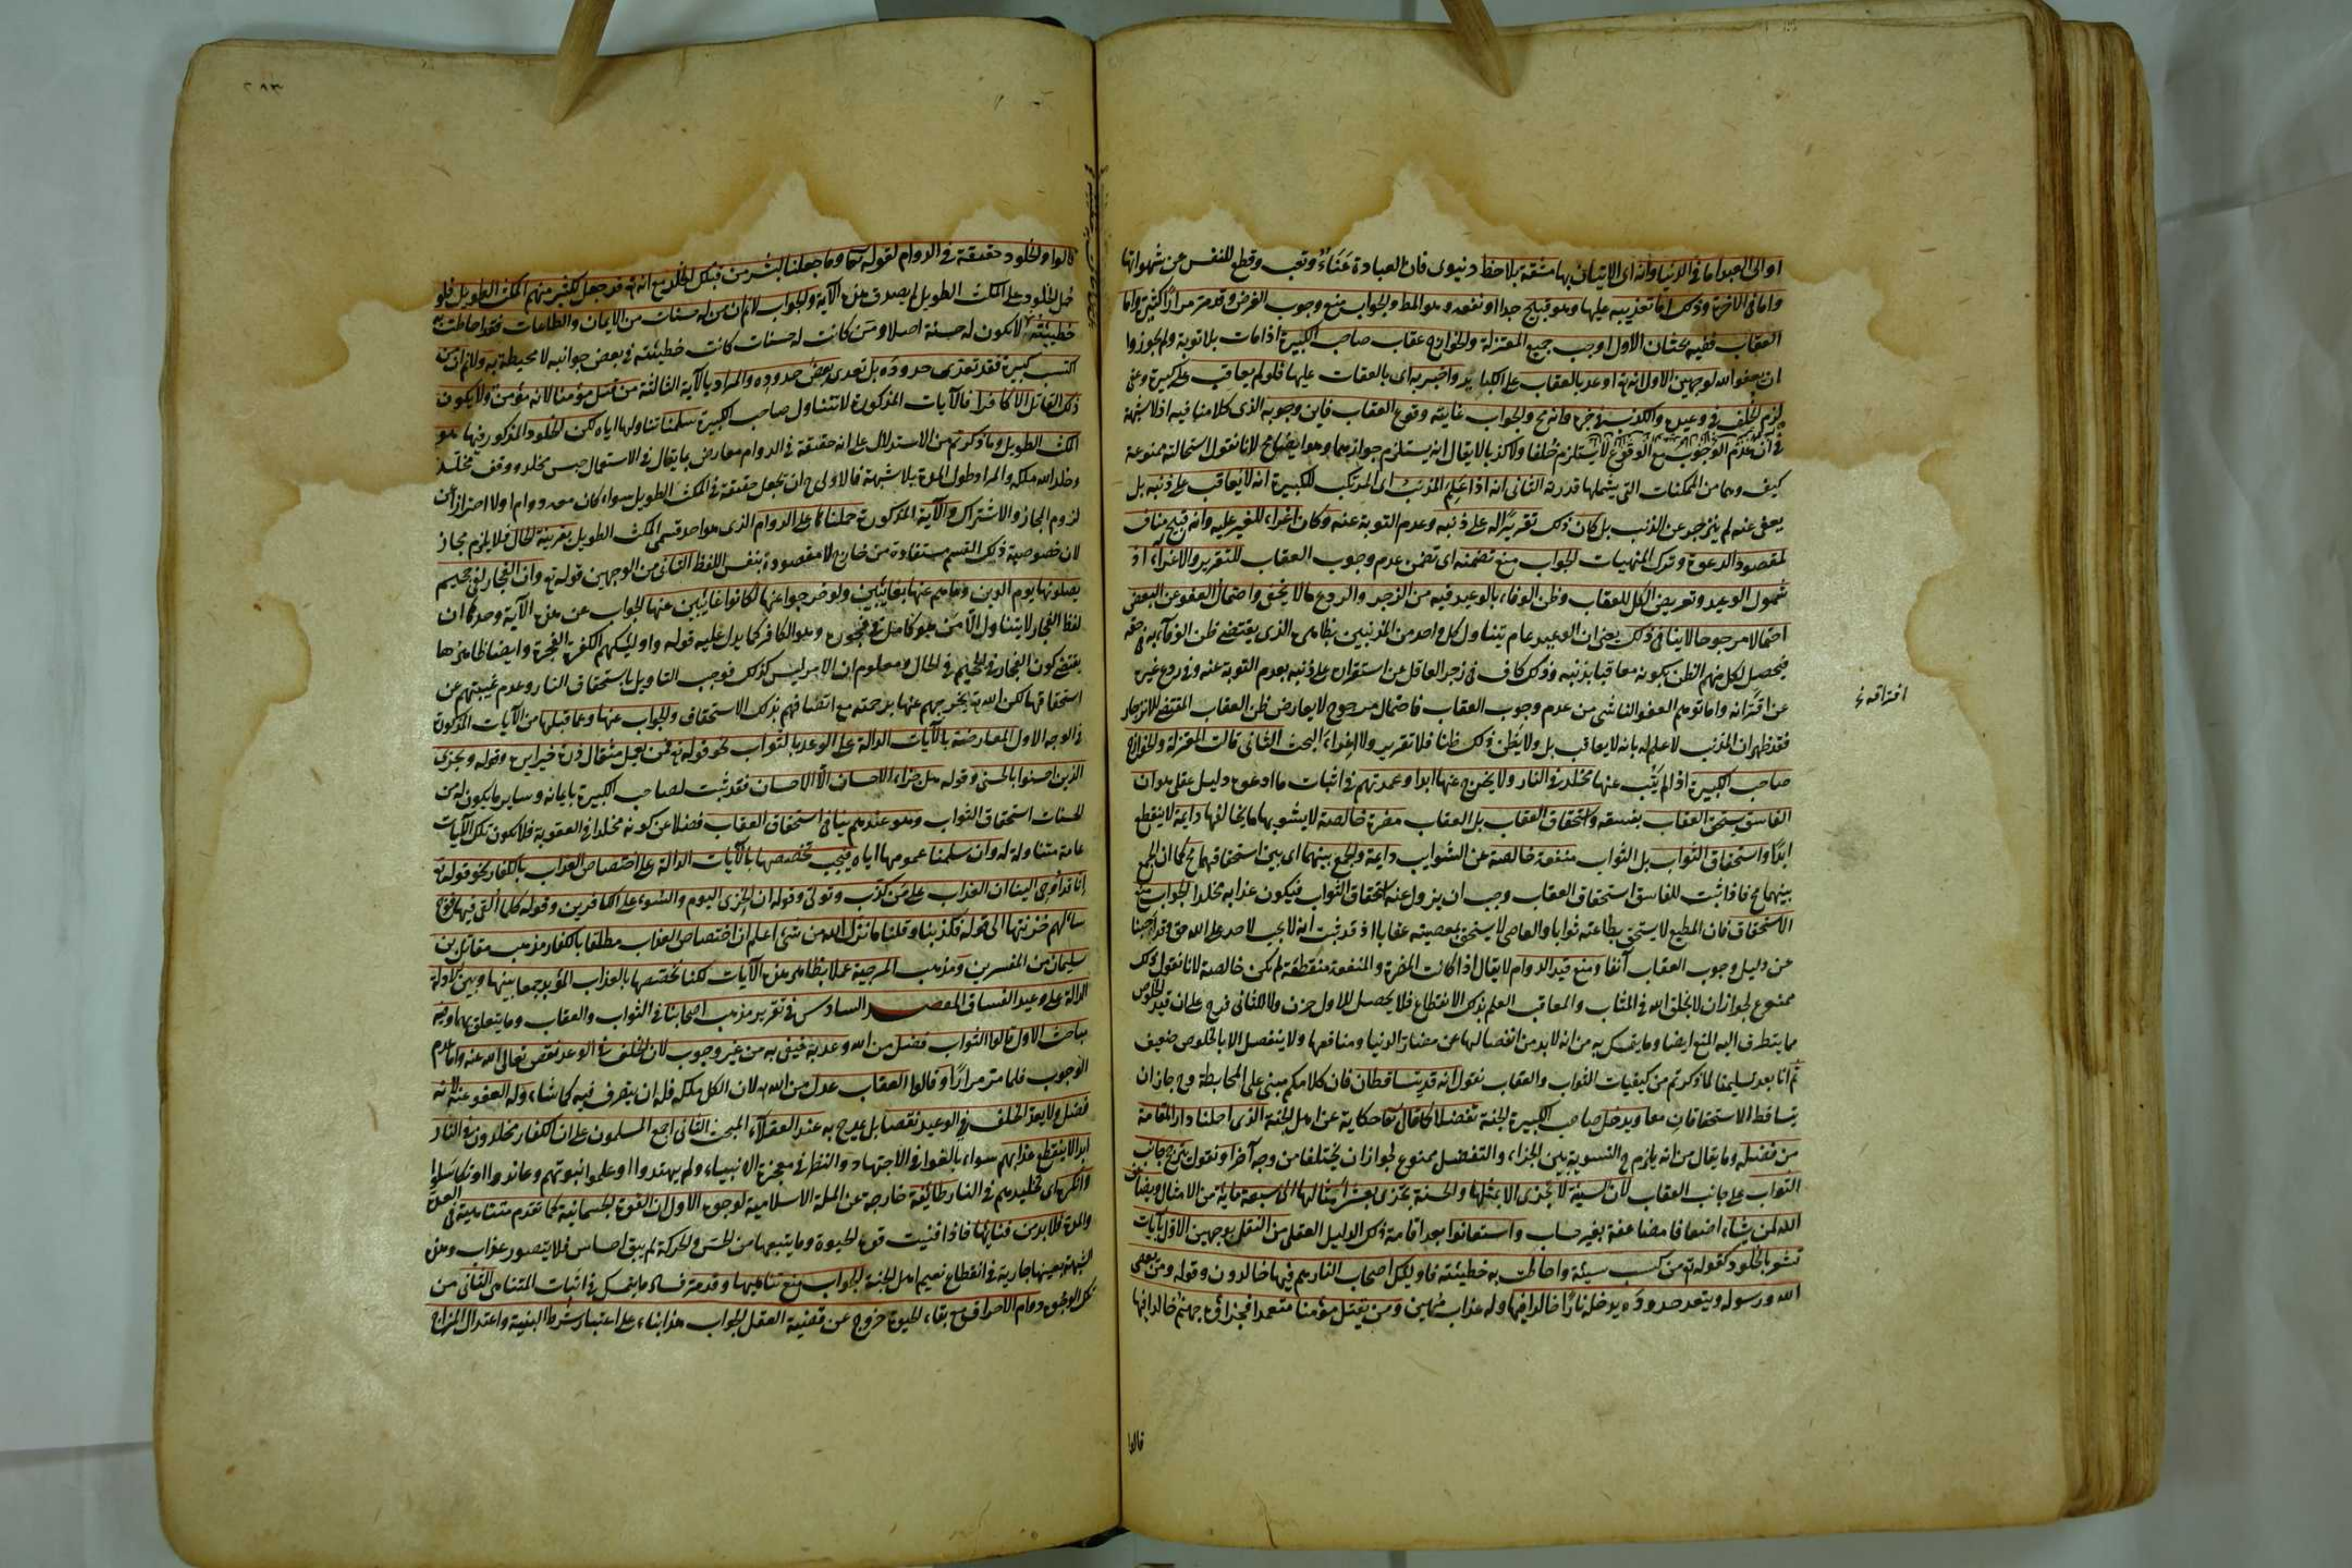 او الى العبد اما فى الدنيا وانه اى الاتيان بها مشقة بلا حظ دنيوى فان العبادة عناء وتعب وقطع للنفس عن شهواتها
واما فى الاخرة وذلك اما تعذيبه عليها وهو قبيح جدا او نفعه وهو المط والجواب منع وجوب الغرض وقد مر مرارا كثيرة واما
العقاب ففيه بحثان الاول اوجب جميع المعتزلة والخوارج عقاب صاحب الكبيرة اذا مات بلا توبة ولم يجوزوا
ان يعفو الله لوجهين الاول انه تع اوعد بالعقاب على الكبائر واخبر به اى بالعقاب عليها فلو لم يعاقب على كبيرة وعفى
لزم الخلف فى وعيده والكذب فى خبره وانه مح والجواب غايته وقوع العقاب فاين وجوبه الذى كلامنا فيه اذ لا شبهة
فى ان عدم الوجوب مع الوقوع لا يستلزم خلفا ولا كذبا لا يقال انه يستلزم جوازهما وهو ايضا مح لانا نقول استحالته ممنوعة
كيف وهما من الممكنات التى يشملها قدرته الثانى انه اذا علم المذنب اى المرتكب للكبيرة انه لا يعاقب على ذنبه بل
يعفى عنه لم ينزجر عن الذنب بل كان ذلك تقريرا له على ذنبه وعدم التوبة عنه وكان اغراء للغير عليه وانه قبيح مناف
لمقصود الدعوة وترك المنهيات الجواب منع تضمنه اى تضمن عدم وجوب العقاب للتقرير والاغراء اذ
شمول الوعيد وتعريض الكل للعقاب وظن الوفاء بالوعيد فيه من الزجر والردع ما لا يخفى واحتمال العفو عن البعض
احتمالا مرجوحا لا ينافى ذلك يعنى ان الوعيد عام يتناول كل واحد من المذنبين بظاهره الذى يقتضى ظن الوفاء به فى حقه
فيحصل لكل منهم الظن بكونه معاقبا بذنبه وذلك كاف فى زجر العاقل عن استقراره على ذنبه بعدم التوبة عنه وفى ردع غيره
عن اقترانه واما توهم العفو الناشى من عدم وجوب العقاب فاحتمال مرجوح لا يعارض ظن العقاب المقتضى للانزجار
افتراقه خ
فقد ظهر ان المذنب لا علم له بانه لا يعاقب بل ولا يظن ذلك ظنا فلا تقرير ولا اغراء البحث الثانى قالت المعتزلة والخوارج
صاحب الكبيرة اذا لم يتب عنها مخلد فى النار ولا يخرج عنها ابدا وعمدتهم فى اثبات ما ادعوه دليل عقلى هو ان
الفاسق يستحق العقاب بفسقه واستحقاق العقاب بل العقاب مضرة خالصة لا يشوبها ما يخالفها دايمة لا ينقطع
ابدا واستحقاق الثواب بل الثواب منفعة خالصة عن الشوايب دايمة والجمع بينهما اى بين استحقاقهما مح كما ان الجمع
بينهما مح فاذا ثبت للفاسق استحقاق العقاب وجب ان يزول عنه استحقاق الثواب فيكون عذابه مخلدا الجواب منع
الاستحقاق فان المطيع لا يستحق بطاعته ثوابا والعاصى لا يستحق بمعصيته عقابا اذ قد ثبت انه لا يجب لاحد على الله حق وقد اجبنا
عن دليل وجوب العقاب آنفا ومنع قيد الدوام لا يقال اذا كانت المضرة والمنفعة منقطعة لم يكن خالصة لانا نقول ذلك
ممنوع لجواز ان لا يخلق الله فى المثاب والمعاقب العلم بذلك الانقطاع فلا يحصل للاول حزن ولا للثانى فرح على ان قيد الخلوص
مما يتطرق اليه المنع ايضا وما يتمسك به من انه لا بد من انفصالها عن مضار الدنيا ومنافعها ولا ينفصل الا بالخلوص ضعيف
ثم انا بعد تسليمنا لما ذكرتم من كيفيات الثواب والعقاب نقول انه قد يتساقطان فان كلامكم مبنى على المحابطة وح جاز ان
يتساقط الاستحقاقان معا ويدخل صاحب الكبيرة الجنة تفضلا كما قال تعا حكاية عن اهل الجنة الذى احلنا دار المقامة
من فضله وما يقال من انه يلزم ح التسوية بين الجزاء والتفضل ممنوع لجواز ان يختلفا من وجه آخر او نقول يترجح جانب
الثواب على جانب العقاب لان السيئة لا تجزى الا بمثلها والحسنة تجزى بعشر امثالها الى سبعة ماية من الامثال ويضاعف
الله لمن يشاء اضعافا مضاعفة بغير حساب واستعانوا بعد اقامة ذلك الدليل العقلى من النقل بوجهين الاول آيات
تشعر بالخلود كقوله تع من كسب سيئة واحاطت به خطيئته فاوليك اصحاب النار هم فيها خالدون وقوله ومن يعص
الله ورسوله ويتعد حدوده يدخله نارا خالدا فيها وله عذاب مهين ومن يقتل مؤمنا متعمدا فجزاؤه جهنم خالدا فيها
قالوا
٢٩٣
قالوا والخلود حقيقة فى الدوام لقوله تعا وما جعلنا لبشر من قبلك الخلد مع انه تع قد جعل لكثير منهم المكث الطويل فلو
حمل الخلود على المكث الطويل لم يصدق هذه الآية والجواب لانم ان من له حسنات من الايمان والطاعات فقد احاطت به
خطيئته لا يكون له حسنة اصلا ومن كانت له حسنات كانت خطيئته فى بعض جوانبه لا محيطة به ولانم ان من
اكتسب كبيرة فقد تعدى حدوده بل تعدى بعض حدوده والمراد بالآية الثالثة من قتل مؤمنا لانه مؤمن ولا يكون
ذلك القاتل الا كافرا فالآيات المذكورة لا تتناول صاحب الكبيرة سلمنا تناولها اياه لكن الخلود المذكور فيها هو
المكث الطويل وما ذكرتم من الاستدلال على انه حقيقة فى الدوام معارض بما يقال فى الاستعمال حبس مخلد ووقف مخلد
وخلد الله ملكه والمراد طول المدة بلا شبهة فالاولى ح ان نجعل حقيقة فى المكث الطويل سواء كان معه دوام اولا احترازا عن
لزوم المجاز والاشتراك والآية المذكورة حملناها على الدوام الذى هو احد قسمى المكث الطويل بقرينة الحال فلا يلزم مجاز
لان خصوصية ذلك القسم مستفادة من خارج لا مقصودة بنفس اللفظ الثانى من الوجهين قوله تع وان الفجار لفى جحيم
يصلونها يوم الدين وما هم عنها بغائبين ولو خرجوا عنها لكانوا غائبين عنها الجواب عن هذه الآية وحدها ان
لفظ الفجار لا يتناول الا من هو كامل فى فجوره وهو الكافر كما يدل عليه قوله اوليك هم الكفرة الفجرة وايضا ظاهرها
يقتضى كون الفجار فى الجحيم فى الحال ومعلوم ان الامر ليس كذلك فوجب التاويل باستحقاق النار وعدم غيبتهم عن
استحقاقها لكن الله تع يخرجهم عنها برحمته مع اتصافهم بذلك الاستحقاق والجواب عنها وعما قبلها من الآيات المذكورة
فى الوجه الاول المعارضة بالآيات الدالة على الوعد بالثواب نحو قوله تع فمن يعمل مثقال ذرة خيرا يره وقوله ويجزى
الذين احسنوا بالحسنى وقوله هل جزاء الاحسان الا الاحسان فقد ثبت لصاحب الكبيرة بايمانه وساير ما يكون له من
الحسنات استحقاق الثواب وهو عندهم ينافى استحقاق العقاب فضلا عن كونه مخلدا فى العقوبة فلا يكون تلك الآيات
عامة متناولة له وان سلمنا عمومها اياه فيجب تخصيصها بالآيات الدالة على اختصاص العذاب بالكفار نحو قوله تع
انا قد اوحى الينا ان العذاب على من كذب وتولى وقوله ان الخزى اليوم والسوء على الكافرين وقوله كلما القى فيها فوج
سالهم خزنتها الى قوله فكذبنا وقلنا ما نزل الله من شئ اعلم ان اختصاص العذاب مطلقا بالكفار مذهب مقاتل بن
سليمان من المفسرين ومذهب المرجية عملا بظاهر هذه الآيات لكنا نخصصها بالعذاب المؤبد جمعا بينها وبين الادلة
الدالة على وعيد الفساق المقصد السادس فى تقرير مذهب اصحابنا فى الثواب والعقاب وما يتعلق بهما وفيه
مباحث الاول قالوا الثواب فضل من الله وعد به فيفى به من غير وجوب لان الخلف فى الوعد نقص تعالى الله عنه واما عدم
الوجوب فلما مر مرارا وقالوا العقاب عدل من الله تع لان الكل ملكه فله ان يتصرف فيه كما شاء وله العفو عنه لانه
فضل ولا يعد الخلف فى الوعيد نقصا بل يمدح به عند العقلاء المبحث الثانى اجمع المسلمون على ان الكفار مخلدون فى النار
ابدا لا ينقطع عذابهم سواء بالغوا فى الاجتهاد والنظر فى معجزة الانبياء ولم يهتدوا او علموا نبوتهم وعاندوا او تكاسلوا
وانكره اى تخليدهم فى النار طائفة خارجة عن الملة الاسلامية لوجوه الاول ان القوة الجسمانية كما تقدم متناهية فى العدة
والمدة فلا بد من فنائها فاذا فنيت قوة الحيوة وما يتبعها من الحس والحركة لم يبق احساس فلا يتصور عذاب وهذه
الشبهة بعينها جارية فى انقطاع نعيم اهل الجنة الجواب منع تناهيها وقد مر فساد ما يتمسك فى اثبات التناهى الثانى من
تلك الوجوه دوام الاحراق مع بقاء الحيوة خروج عن قضية العقل الجواب هذا بناء على اعتبار شرط البنية واعتدال المزاج